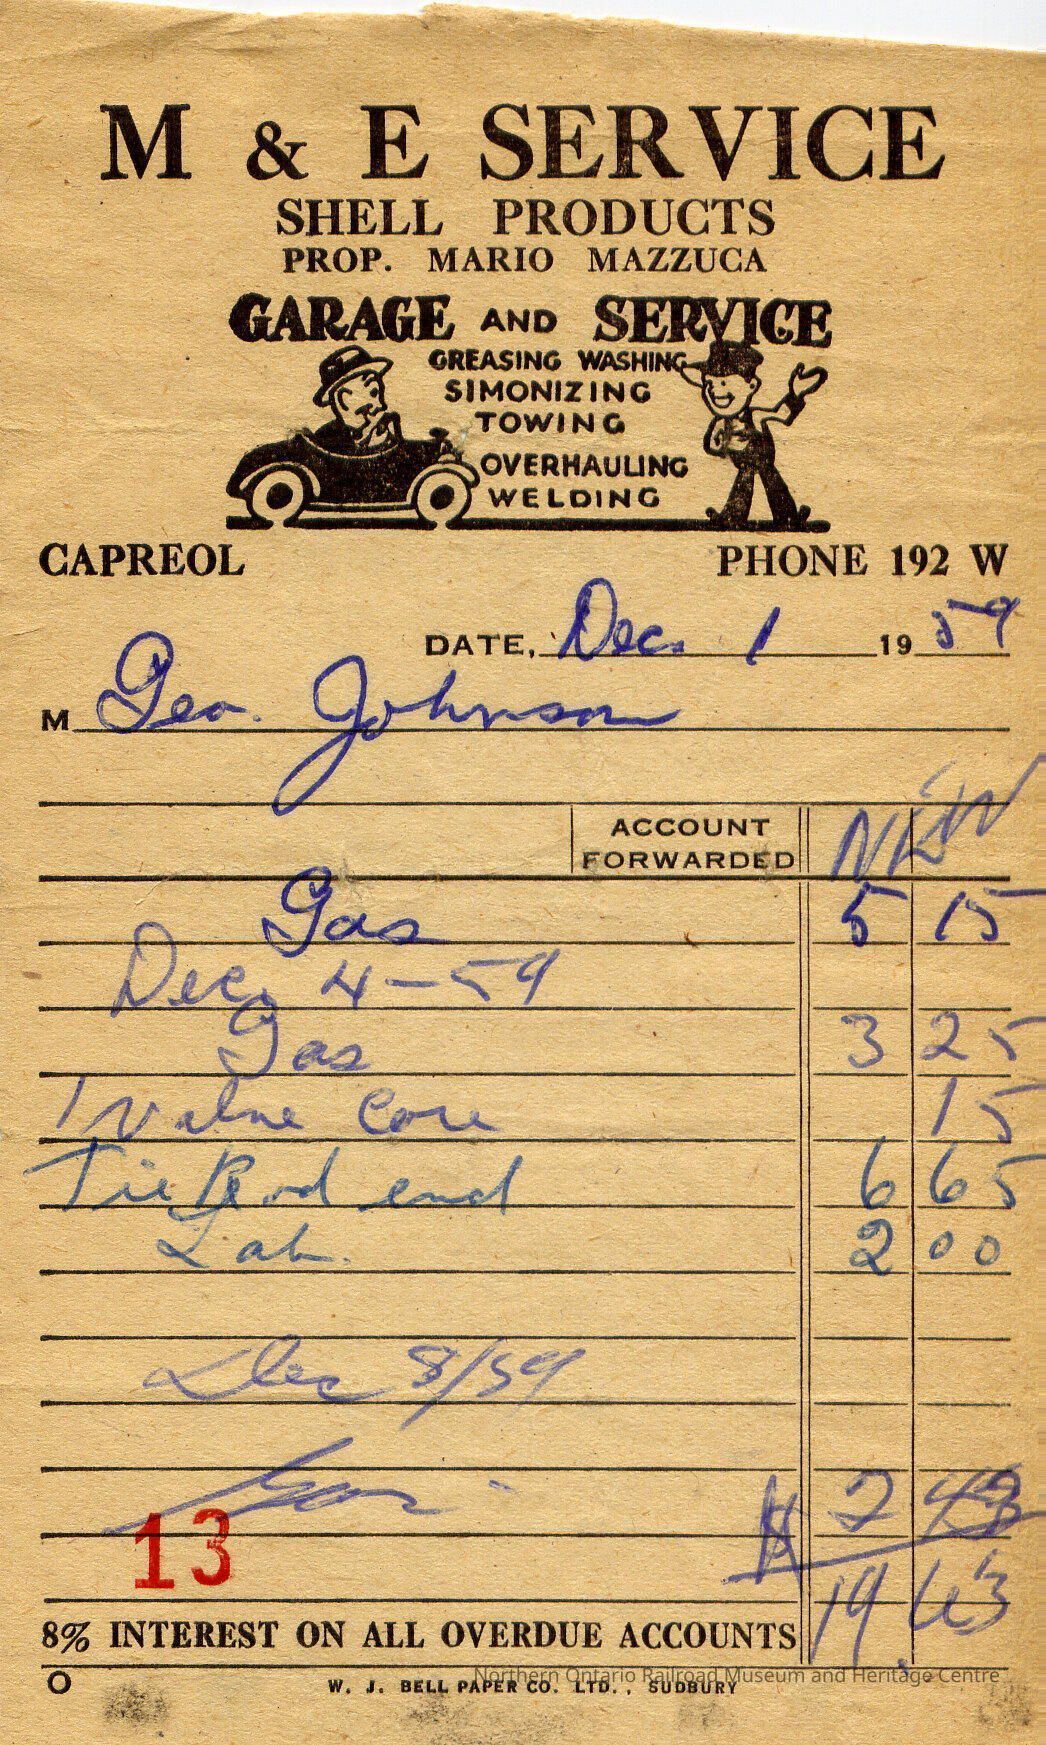 M & E SERVICE
SHELL PRODUCTS
PROP. MARIO MAZZUCA
GARAGE AND SERVICE
GREASING WASHING
SIMONIZING
TOWING
OVERHAULING
WELDING
CAPREOL PHONE 192 W
DATE, Dec. 1 19 59
M Geo. Johnson
ACCOUNT FORWARDED NEW
Gas 5 15
Dec. 4-59
Gas 3 25
1 Valve Core 15
Tie Rod end 6 65
Lab. 2 00
Dec 8/59
Gas 2 43
13 $ 19.63
8% INTEREST ON ALL OVERDUE ACCOUNTS
W. J. BELL PAPER CO. LTD., SUDBURY
Northern Ontario Railroad Museum and Heritage Centre